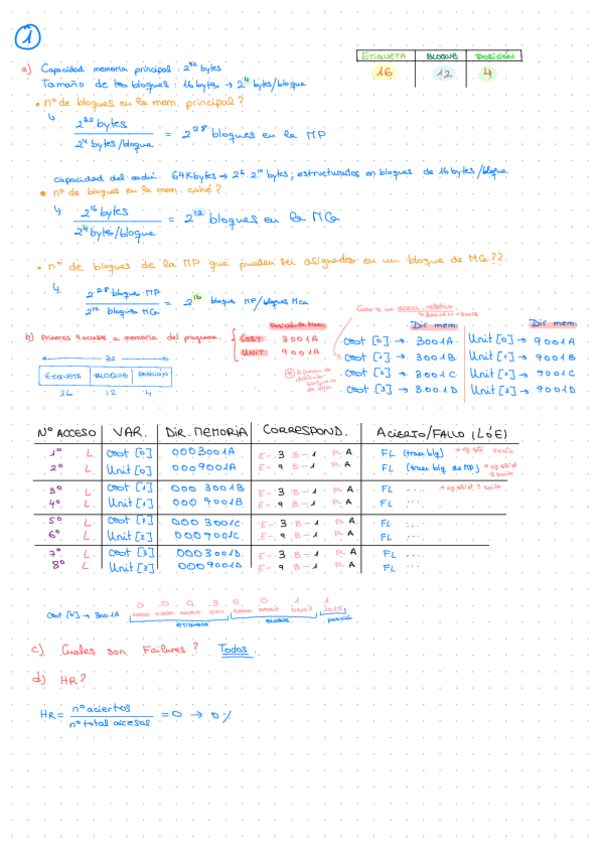 1
a) Capacidad memoria principal : 2³² bytes
Tamaño de los bloques : 16 bytes → 2⁴ bytes/bloque
ETIQUETA BLOQUE POSICIÓN
16 12 4
• nº de bloques en la mem. principal ?
2³² bytes
2⁴ bytes/bloque
= 2²⁸ bloques en la MP
64 Kbytes → 2⁶ 2¹⁰ bytes; estructurados en bloques de 16 bytes/bloque
• nº de bloques en la mem. caché ?
2¹⁶ bytes
2⁴ bytes/bloque
= 2¹² bloques en la MCa
• nº de bloques de la MP que pueden ser asignados en un bloque de MCa??
2²⁸ bloques MP
2¹² bloques MCa
= 2¹⁶ bloques MP/bloques MCa
b) Primeros 8 accesos a memoria del programa.
COST 3001A
UNIT 9001A
Dir mem. Dir mem.
Cost [0] → 3001A Unit [0] → 9001A
Cost [1] → 3001B Unit [1] → 9001B
Cost [2] → 3001C Unit [2] → 9001C
Cost [3] → 3001D Unit [3] → 9001D
32
ETIQUETA BLOQUE POSICIÓN
16 12 4
Nº ACCESO VAR. DIR. MEMORIA CORRESPOND. ACIERTO/FALLO (L ó E)
1º L Cost [0] 0003001A E- 3 B- 1 P- A FL (trans blq)
2º L Unit [0] 0009001A E- 9 B- 1 P- A FL (trans blq de MP)
3º L Cost [1] 0003001B E- 3 B- 1 P- A FL
4º L Unit [1] 0009001B E- 9 B- 1 P- A FL
5º L Cost [2] 0003001C E- 3 B- 1 P- A FL ...
6º L Unit [2] 0009001C E- 9 B- 1 P- A FL ...
7º L Cost [3] 0003001D E- 3 B- 1 P- A FL ...
8º L Unit [3] 0009001D E- 9 B- 1 P- A FL ...
0 0 0 3 0 0 1 1
Cost [0] → 3001A 0000 0000 0000 0011 0000 0000 0001 1010
ETIQUETA BLOQUE POSICIÓN
c) Cuales son Failures ? Todos.
d) HR?
HR = nº aciertos
nº total accesos
= 0 → 0 %